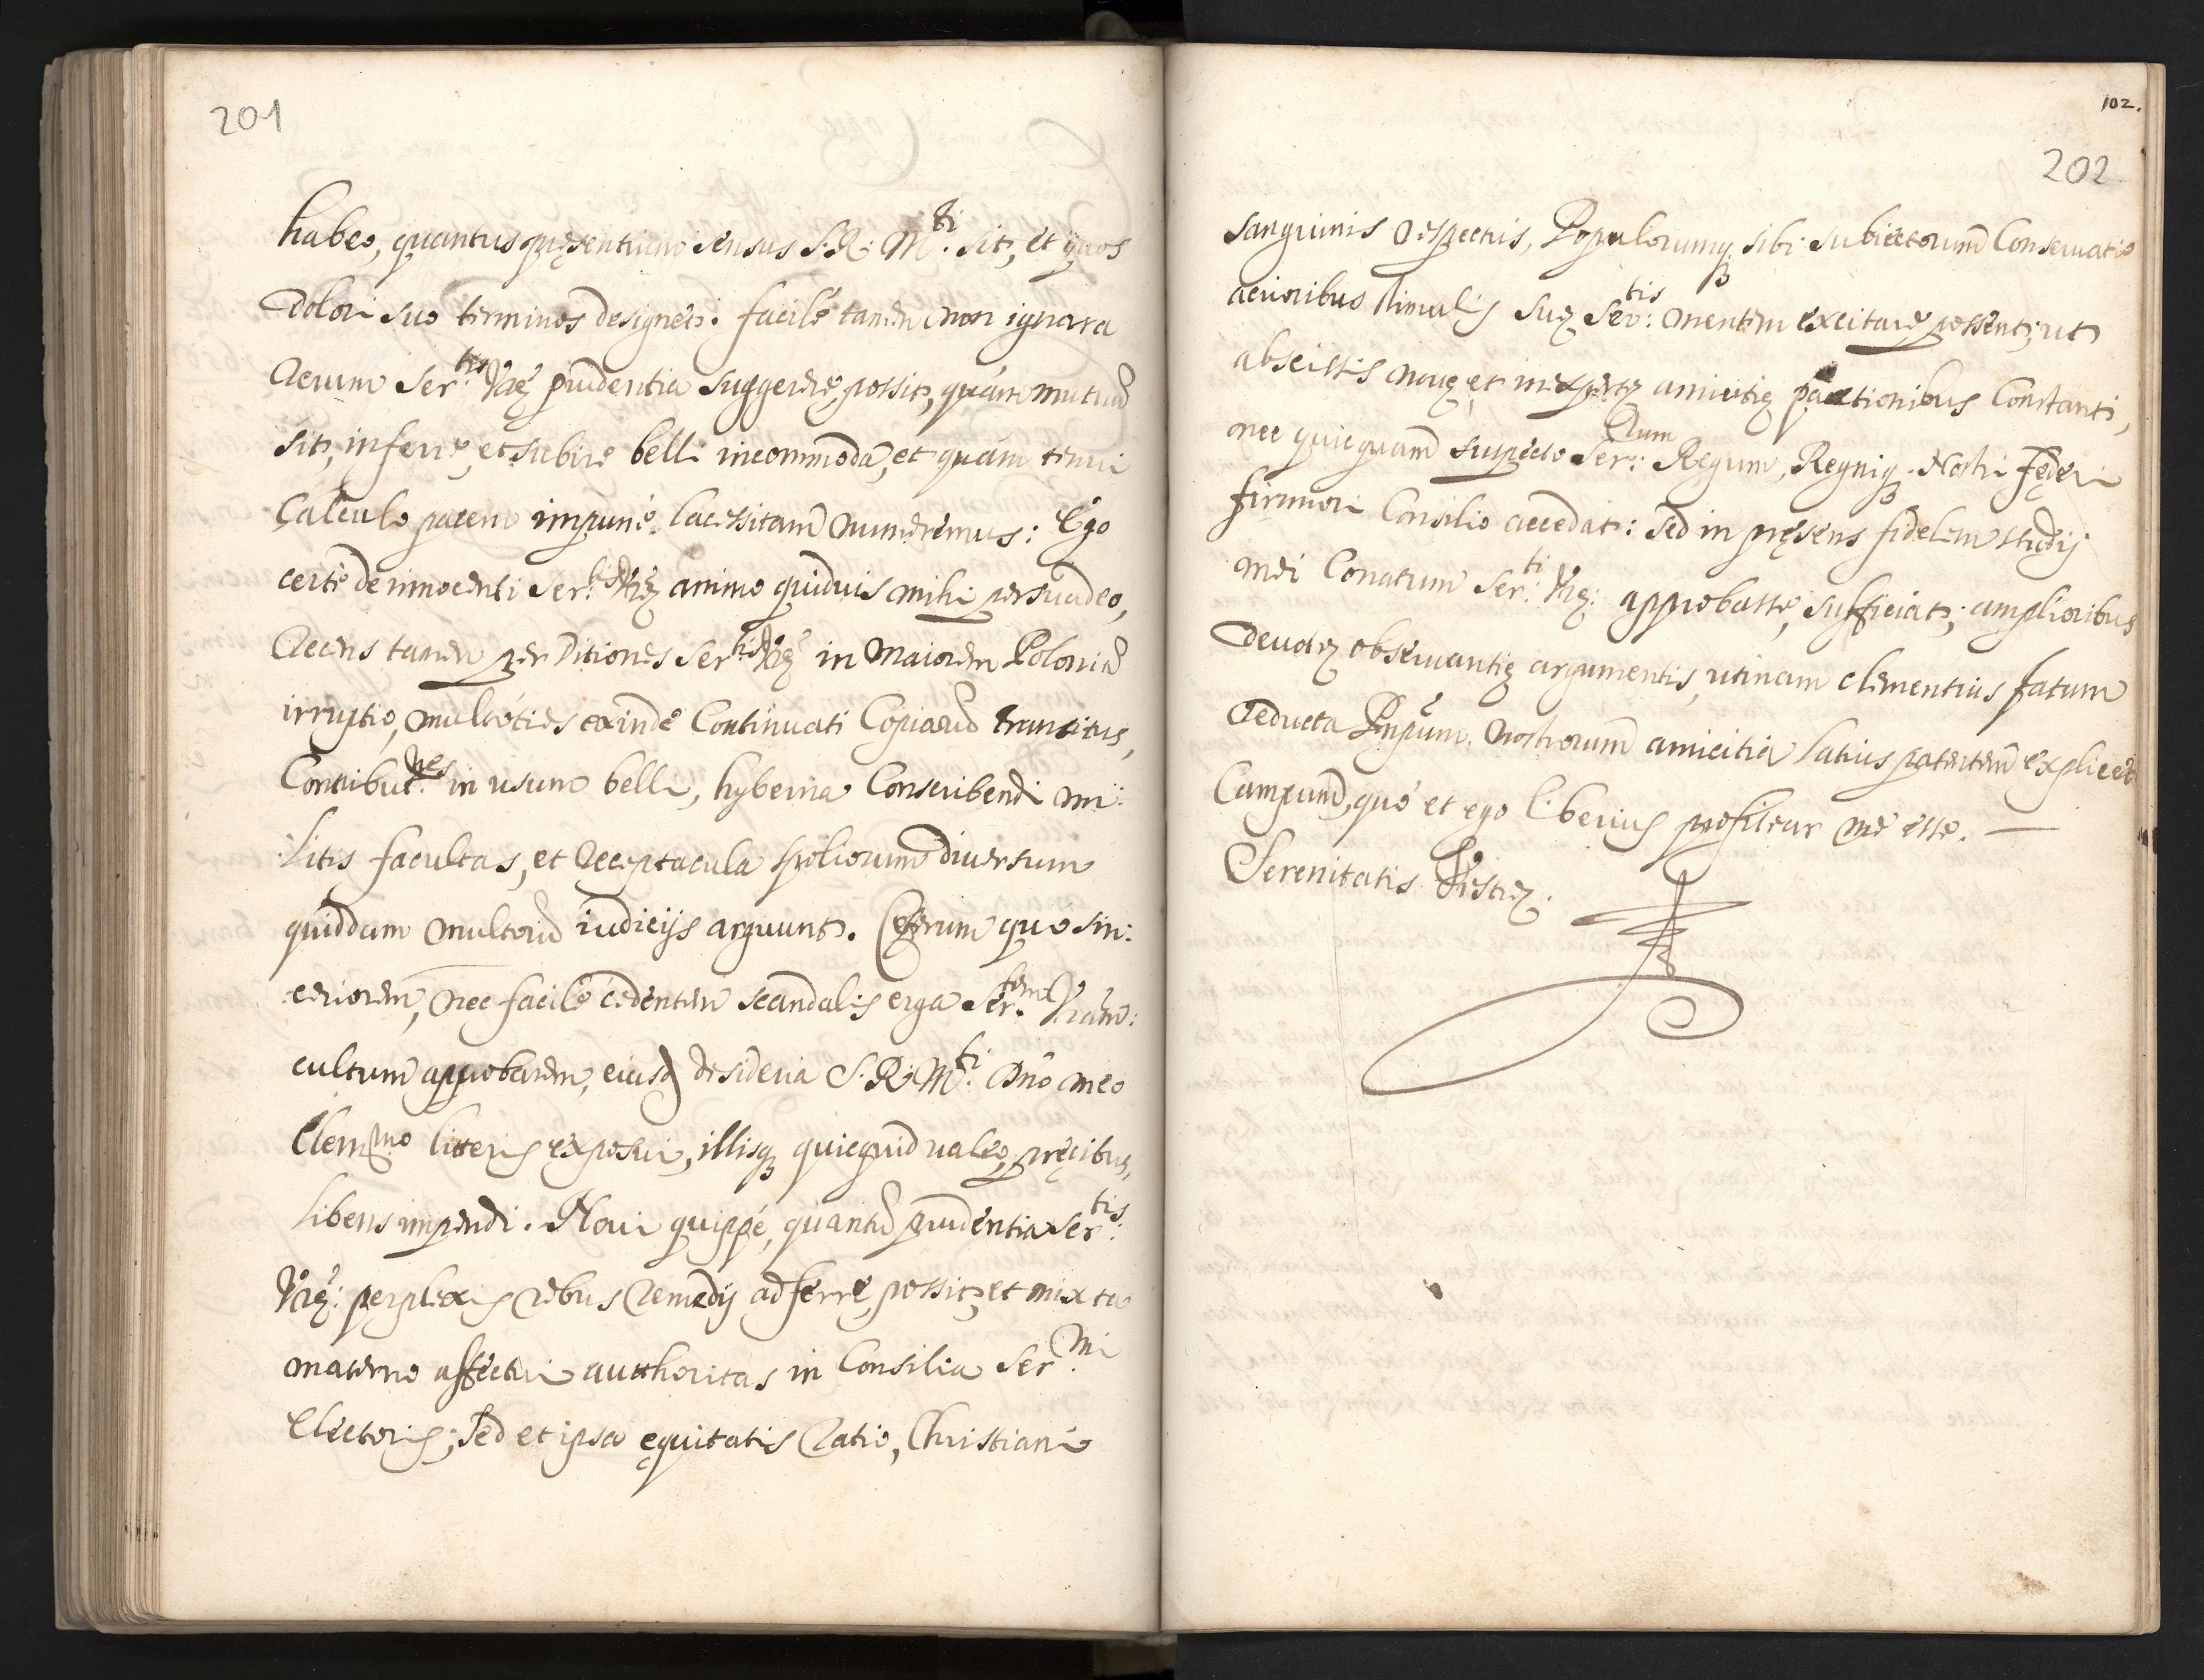 201
habeo, quantus pręsentium sensus S. R. M.ti sit, et quos
dolori suo terminos designet: facilè tamen non ignara
rerum Ser.tis Vrę prudentia suggerere possit, quàm mutuũ
sit, inferre, et subire belli incommoda, et quàm tenui
Calculo pacem impunè lacessitam numeremus: Ego
certè de innocenti Ser.tis Vrę animo quiduis mihi persuadeo,
Recens tamen per Ditiones Ser.tis Vrę in Maiorem Poloniã
irruptio, multoties exindè Continuati Copiarũ transitus,
Contribut.nes in usum belli, hyberna Conscribendi mi:
:litis facultas, et receptacula spoliorum diuersum
quiddam multorũ iudicijs arguunt. Cęterum quo sin:
:ceriorem, nec facilè cedentem scandalis erga Ser.tem Vram:
cultum approbarem, eiusq desideria S. R. M.ti Dño meo
Clem.mo litteris exposui, illisq quicquid ualeo, pręcibus,
libens impendi. Noui quippè, quantũ prudentia Ser.tis
Vrę: perplexis rebus remedij adferre possit, et mixta
materno affectui authoritas in Consilia Ser.mi
Electoris; Sed et ipsa ęquitatis ratio, Christiani
102.
202
sanguinis respectus, Populorumq sibi subiectorum Conseruatio
acrioribus stimulis Suę Ser.tis mentem excitare possent, ut
abscissis nouę et inexpertę amicitię pactionibus Constanti,
nec quicquam suspecto Ser.rum Regum, Regniq Nostri Fęderi
firmiori Consilio accedat: Sed in pręsens fidelem studij
mei Conatum Ser.ti Vrę: approbasse, sufficiat; amplioribus
deuotę obseruantię argumentis, utinam clementius fatum
reducta Pnpum. nostrorum amicitia latius patentem explicet
Campum, quò et ego liberius profitear me esse. —
Serenitatis Vestrę.